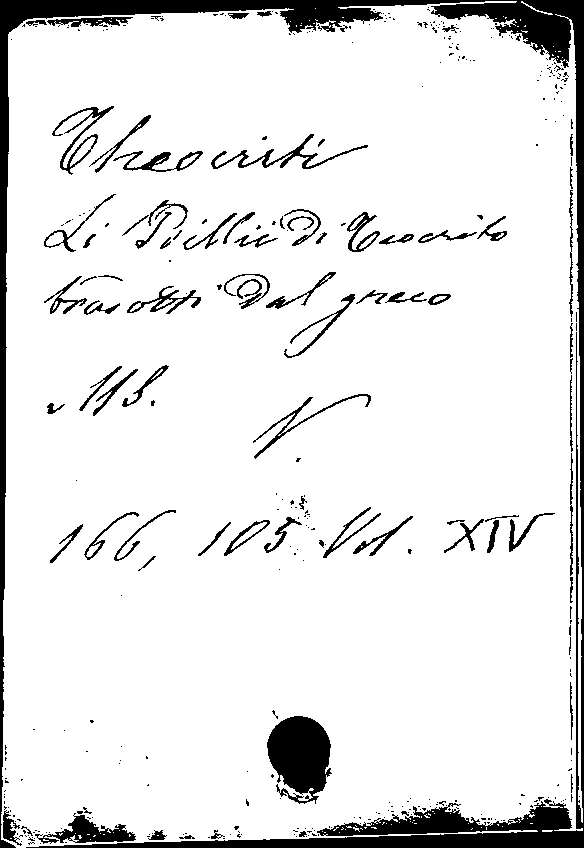 Theocriti
Li Idillii di Teocrito
tradotti dal greco
MS.
V.
166, 105 Vol. XIV